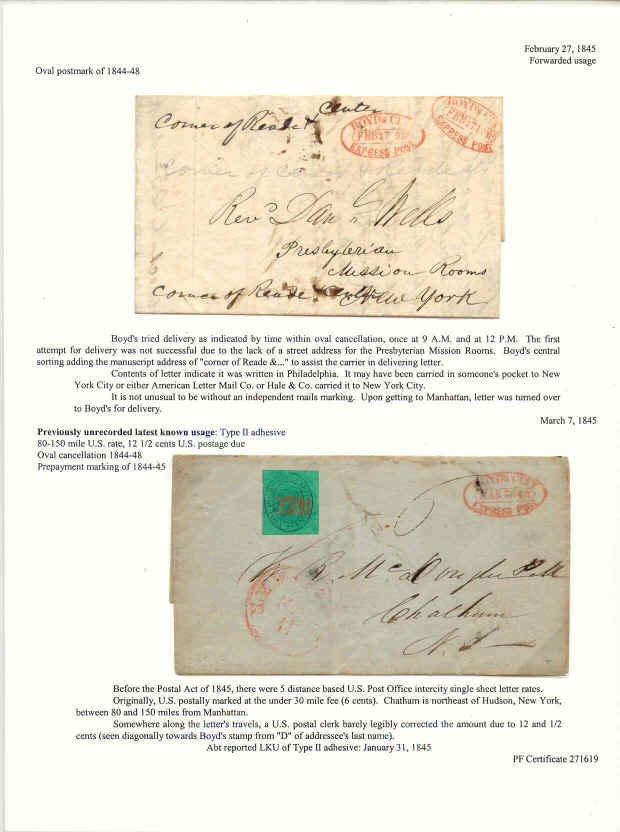 February 27, 1845
Forwarded usage
Oval postmark of 1844-48
Corner of Reade & Center
BOYD'S CITY
EXPRESS POST
BOYD'S CITY
EXPRESS POST
Corner of
Revd Dan L Wells
Presbyterian
Mission Rooms
Corner of Reade
New York
Boyd's tried delivery as indicated by time within oval cancellation, once at 9 A.M. and at 12 P.M. The first
attempt for delivery was not successful due to the lack of a street address for the Presbyterian Mission Rooms. Boyd's central
sorting adding the manuscript address of "corner of Reade &..." to assist the carrier in delivering letter.
Contents of letter indicate it was written in Philadelphia. It may have been carried in someone's pocket to New
York City or either American Letter Mail Co. or Hale & Co. carried it to New York City.
It is not unusual to be without an independent mails marking. Upon getting to Manhattan, letter was turned over
to Boyd's for delivery.
March 7, 1845
Previously unrecorded latest known usage: Type II adhesive
80-150 mile U.S. rate, 12 1/2 cents U.S. postage due
Oval cancellation 1844-48
Prepayment marking of 1844-45
BOYD'S CITY
EXPRESS POST
Chatham
Before the Postal Act of 1845, there were 5 distance based U.S. Post Office intercity single sheet letter rates.
Originally, U.S. postally marked at the under 30 mile fee (6 cents). Chatham is northeast of Hudson, New York,
between 80 and 150 miles from Manhattan.
Somewhere along the letter's travels, a U.S. postal clerk barely legibly corrected the amount due to 12 and 1/2
cents (seen diagonally towards Boyd's stamp from "D" of addressee's last name).
Abt reported LKU of Type II adhesive: January 31, 1845
PF Certificate 271619